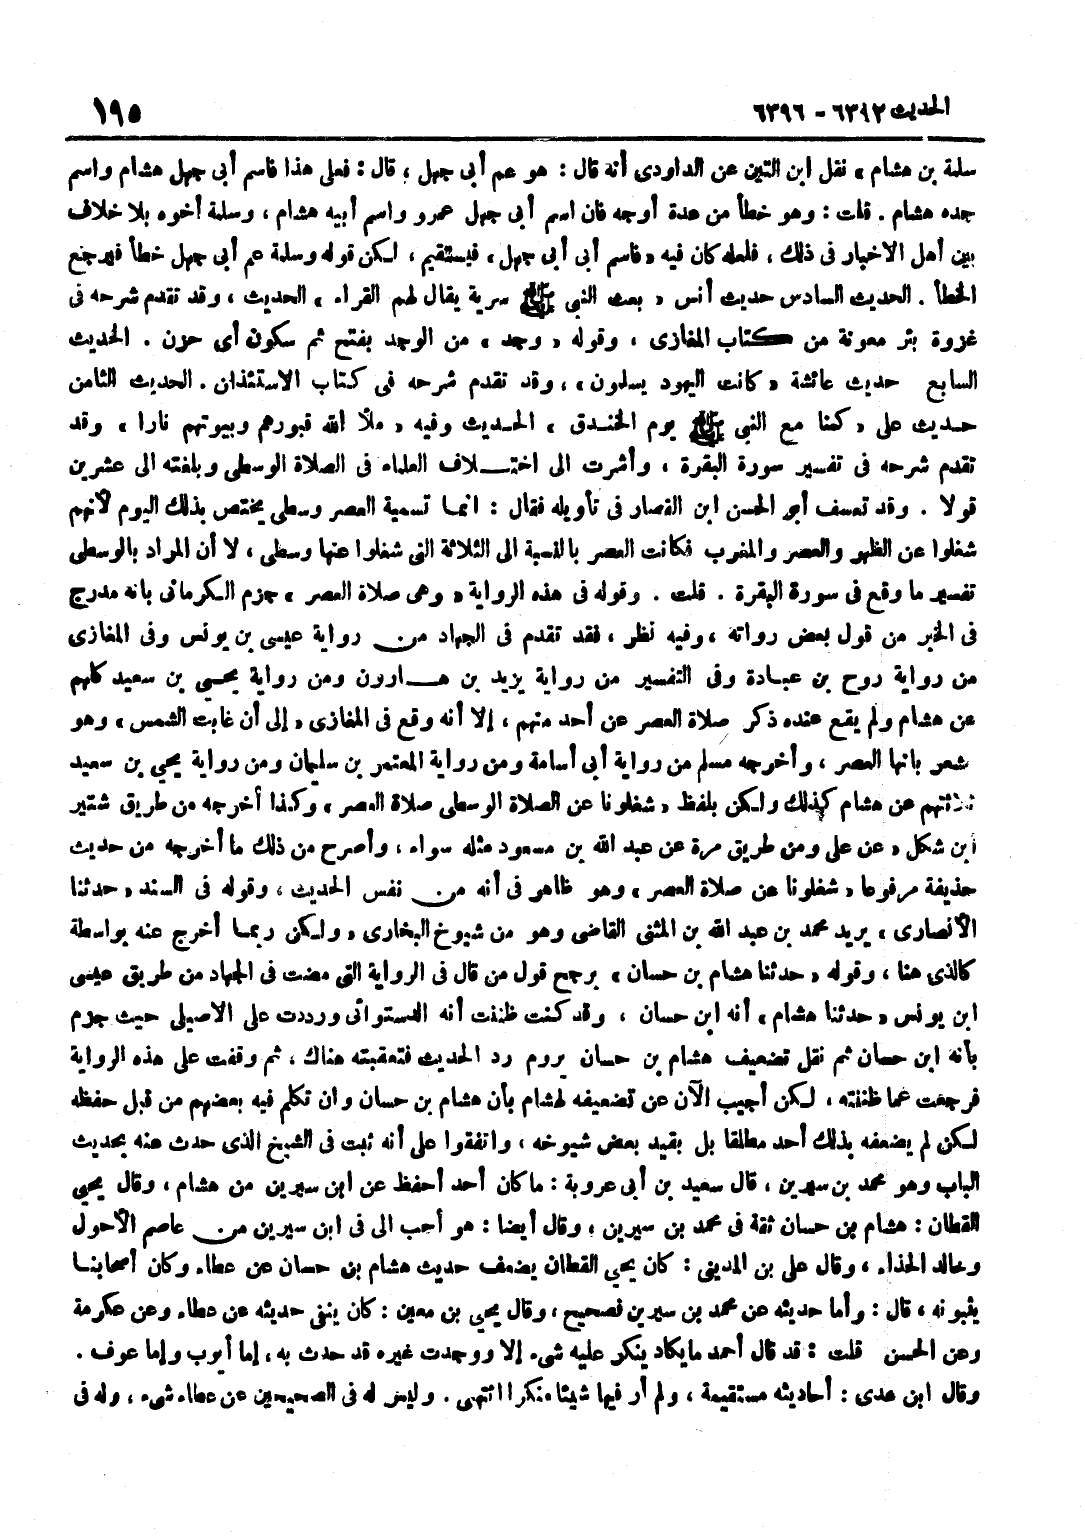 الحديث ٦٣٩٢ - ٦٣٩٦
١٩٥
سلمة بن هشام » نقل ابن التين عن الداودى أنه قال : هو عم أبى جهل ، قال : فعلى هذا فاسم أبى جهل هشام واسم
جده هشام . قلت : وهو خطأ من عدة أوجه فان اسم أبى جهل عمرو واسم أبيه هشام ، وسلمة أخوه بلا خلاف
بين أهل الاخبار فى ذلك ، فلعله كان فيه « فاسم أبى أبى جهل » فيستقيم ، لكن قوله وسلمة عم أبى جهل خطأ فيرجع
الخطأ . الحديث السادس حديث أنس « بعث النبى ﷺ سرية يقال لهم القراء » الحديث ، وقد تقدم شرحه فى
غزوة بئر معونة من كتاب المغازى ، وقوله « وجد » من الوجد بفتح ثم سكون أى حزن . الحديث
السابع حديث عائشة « كانت اليهود يسلمون » ، وقد تقدم شرحه فى كتاب الاستئذان . الحديث الثامن
حديث على « كنا مع النبى ﷺ يوم الخندق » الحديث وفيه « ملأ الله قبورهم وبيوتهم نارا » وقد
تقدم شرحه فى تفسير سورة البقرة ، وأشرت الى اختلاف العلماء فى الصلاة الوسطى وبلغته الى عشرين
قولا . وقد تعسف أبو الحسن ابن القصار فى تأويله فقال : انما تسمية العصر وسطى يختص بذلك اليوم لأنهم
شغلوا عن الظهر والعصر والمغرب فكانت العصر بالنسبة الى الثلاثة التى شغلوا عنها وسطى ، لا أن المراد بالوسطى
تفسير ما وقع فى سورة البقرة . قلت . وقوله فى هذه الرواية « وهى صلاة العصر » جزم الكرمانى بانه مدرج
فى الخبر من قول بعض رواته ، وفيه نظر ، فقد تقدم فى الجهاد من رواية عيسى بن يونس وفى المغازى
من رواية روح بن عبادة وفى التفسير من رواية يزيد بن هارون ومن رواية يحيى بن سعيد كلهم
عن هشام ولم يقع عنده ذكر صلاة العصر عن أحد منهم ، إلا أنه وقع فى المغازى « إلى أن غابت الشمس » وهو
شعر بانها العصر ، وأخرجه مسلم من رواية أبى أسامة ومن رواية المعتمر بن سليمان ومن رواية يحيى بن سعيد
ثلاثتهم عن هشام كذلك ولكن بلفظ « شغلونا عن الصلاة الوسطى صلاة العصر » وكذا أخرجه من طريق شتير
ابن شكل « عن على ومن طريق مرة عن عبد الله بن مسعود مثله سواء ، وأصرح من ذلك ما أخرجه من حديث
حذيفة مرفوعا « شغلونا عن صلاة العصر » وهو ظاهر فى أنه من نفس الحديث ، وقوله فى السند « حدثنا
الأنصارى » يريد محمد بن عبد الله بن المثنى القاضى وهو من شيوخ البخارى « ولكن ربما أخرج عنه بواسطة
كالذى هنا ، وقوله « حدثنا هشام بن حسان » يرجح قول من قال فى الرواية التى مضت فى الجهاد من طريق عيسى
ابن يونس « حدثنا هشام » أنه ابن حسان ، وقد كنت ظننت أنه الدستوائى ورددت على الاصيلى حيث جزم
بأنه ابن حسان ثم نقل تضعيف هشام بن حسان يروم رد الحديث فتعقبته هناك ، ثم وقفت على هذه الرواية
فرجعت عما ظننته ، لكن أجيب الآن عن تضعيفه لهشام بأن هشام بن حسان وان تكلم فيه بعضهم من قبل حفظه
لكن لم يضعفه بذلك أحد مطلقا بل بقيد بعض شيوخه ، واتفقوا على أنه ثبت فى الشيخ الذى حدث عنه بحديث
الباب وهو محمد بن سيرين ، قال سعيد بن أبى عروبة : ما كان أحد أحفظ عن ابن سيرين من هشام ، وقال يحيى
القطان : هشام بن حسان ثقة فى محمد بن سيرين ، وقال أيضا : هو أحب الى فى ابن سيرين من عاصم الأحول
وخالد الحذاء ، وقال على بن المدينى : كان يحيى القطان يضعف حديث هشام بن حسان عن عطاء وكان أصحابنا
يثبتونه ، قال : وأما حديثه عن محمد بن سيرين فصحيح ، وقال يحيى بن معين : كان ينفى حديثه عن عطاء وعن عكرمة
وعن الحسن قلت : قد قال أحمد ما يكاد ينكر عليه شىء إلا ووجدت غيره قد حدث به ، إما أيوب وإما عوف .
وقال ابن عدى : أحاديثه مستقيمة ، ولم أر فيها شيئا منكرا انتهى . وليس له فى الصحيحين عن عطاء شىء ، وله فى